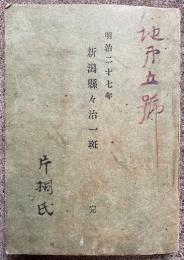 地第五號
明治二十七年
新潟縣々治一斑 完
片桐氏